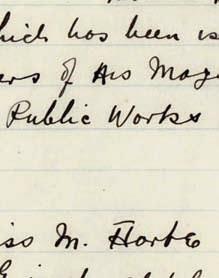 which has been is
ers of His Maj
Public Works
iss M. Harte